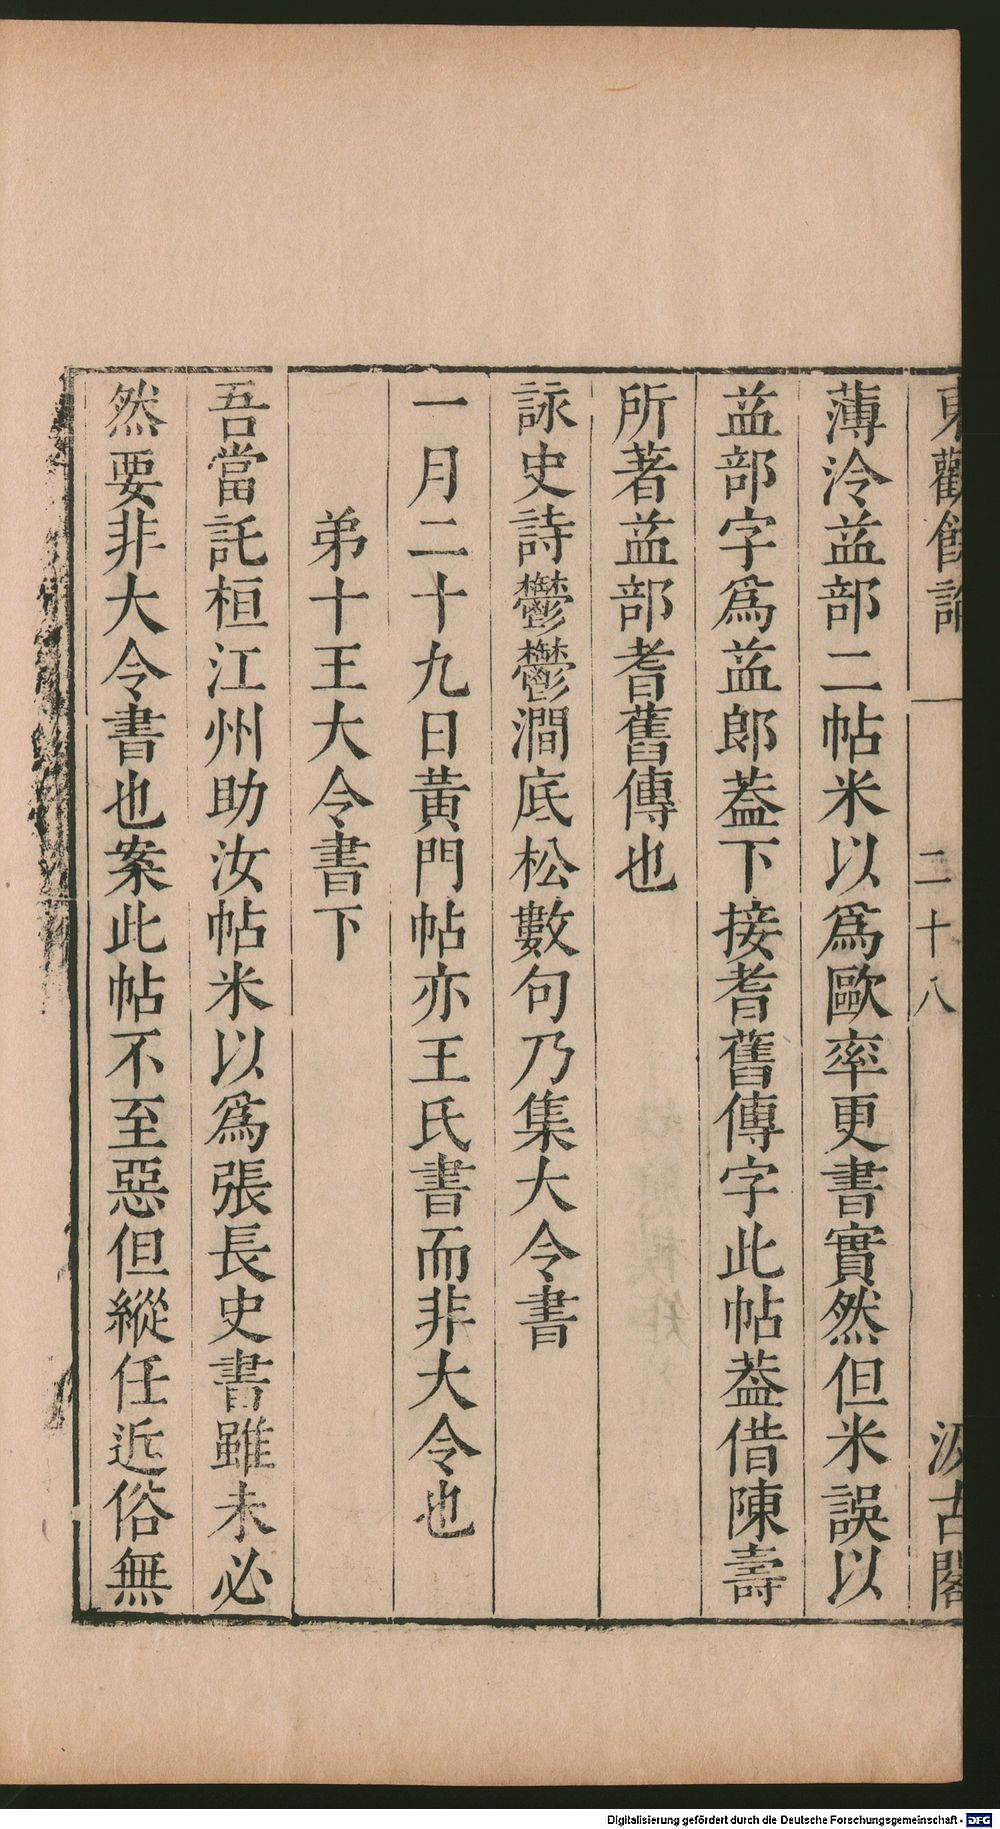 東觀餘論 一 二十八 汲古閣
薄冷益部二帖米以爲歐率更書實然但米誤以
益部字爲益郎葢下接耆舊傳字此帖葢借陳壽
所著益部耆舊傳也
詠史詩鬱鬱澗底松數句乃集大令書
一月二十九日黃門帖亦王氏書而非大令也
弟十王大令書下
吾當託桓江州助汝帖米以爲張長史書雖未必
然要非大令書也案此帖不至惡但縱任近俗無
Digitalisierung gefördert durch die Deutsche Forschungsgemeinschaft - DFG